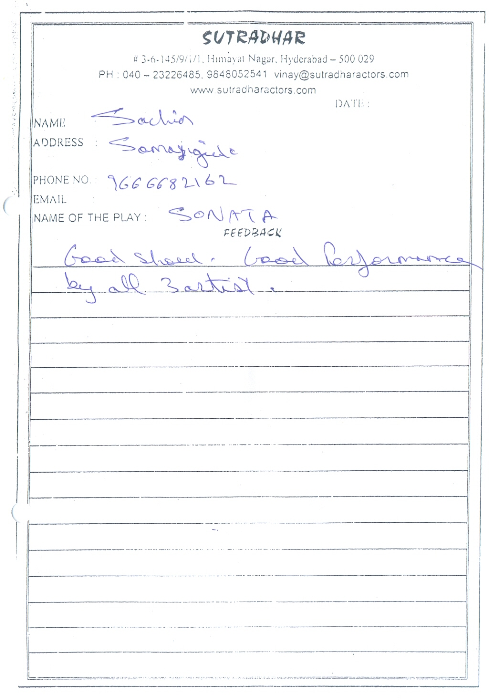 SUTRADHAR
# 3-6-145/9/1/1, Himayat Nagar, Hyderabad – 500 029
PH : 040 – 23226485, 9848052541 vinay@sutradharactors.com
www.sutradharactors.com
DATE :
NAME Sachin
ADDRESS : Somajiguda
PHONE NO. 9666682162
EMAIL
NAME OF THE PLAY : SONATA
FEEDBACK
Good . Good Performance
by all 3 artist .